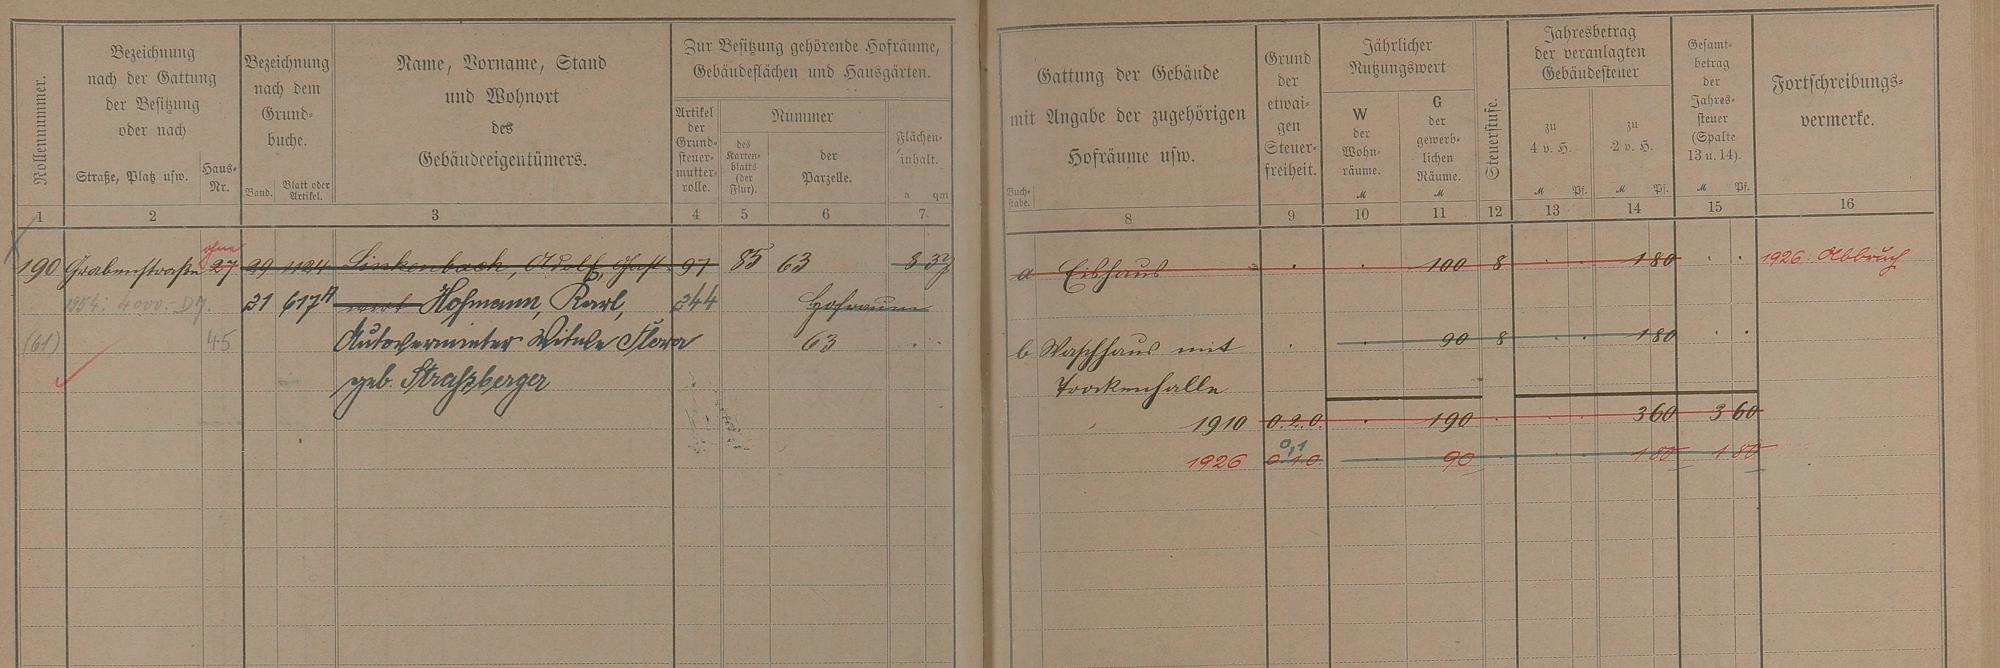 Rollennummer.
Bezeichnung
nach der Gattung
der Besitzung
oder nach
Straße, Platz usw.
Haus-
Nr.
Bezeichnung
nach dem
Grund-
buche.
Band.
Blatt oder
Artikel.
Name, Vorname, Stand
und Wohnort
des
Gebäudeeigentümers.
Zur Besitzung gehörende Hofräume,
Gebäudeflächen und Hausgärten.
Artikel
der
Grund-
steuer-
mutter-
rolle.
Nummer
des
Karten-
blatts
(der
Flur).
der
Parzelle.
Flächen-
inhalt.
a qm
1 2 3 4 5 6 7
190 Grabenstraße 27 29 1124 Linkenbach, Adolf, Gast- 97 85 63 8 37
ohne
1954: 4000.- DM. 31 617 wirt Hofmann, Karl, 344 Hofraum
(61) 45 Autovermieter Witwe Flora 63
geb. Straßberger
Gattung der Gebäude
mit Angabe der zugehörigen
Hofräume usw.
Buch-
stabe.
Grund
der
etwai-
gen
Steuer-
freiheit.
Jährlicher
Nutzungswert
W
der
Wohn-
räume.
M
G
der
gewerb-
lichen
Räume.
M
Steuerstufe.
Jahresbetrag
der veranlagten
Gebäudesteuer
zu
4 v. H.
M Pf.
zu
2 v. H.
M Pf.
Gesamt-
betrag
der
Jahres-
steuer
(Spalte
13 u. 14).
M Pf.
Fortschreibungs-
vermerke.
8 9 10 11 12 13 14 15 16
a Eishaus 100 8 1 80 1926: Abbruch
b Waschhaus mit 90 8 1 80
Trockenhalle
1910 0.2.0. 190 3 60 3 60
0,1
1926 0.1.0. 90 1 80 1 80